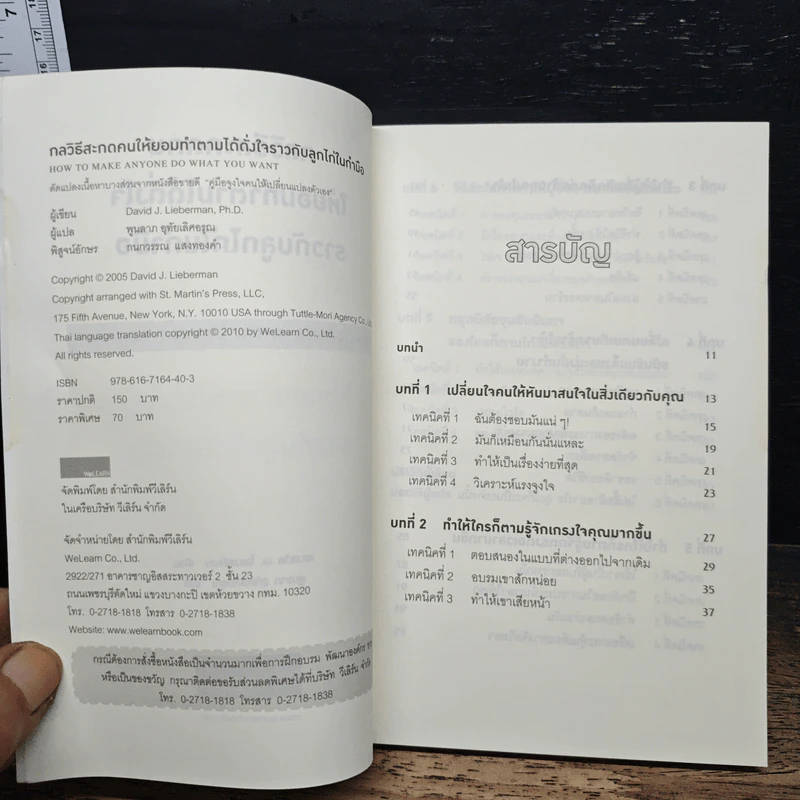 กลวิธีสะกดคนให้ยอมทำตามได้ดั่งใจราวกับลูกไก่ในกำมือ
HOW TO MAKE ANYONE DO WHAT YOU WANT
ดัดแปลงเนื้อหาบางส่วนจากหนังสือขายดี "คู่มือจูงใจคนให้เปลี่ยนแปลงตัวเอง"
ผู้เขียน David J. Lieberman, Ph.D.
ผู้แปล พูนลาภ อุทัยเลิศอรุณ
พิสูจน์อักษร กนกวรรณ แสงทองคำ
Copyright © 2005 David J. Lieberman
Copyright arranged with St. Martin's Press, LLC,
175 Fifth Avenue, New York, N.Y. 10010 USA through Tuttle-Mori Agency Co.,
Thai language translation copyright © 2010 by WeLearn Co., Ltd.
All rights reserved.
ISBN 978-616-7164-40-3
ราคาปกติ 150 บาท
ราคาพิเศษ 70 บาท
WeLearn
จัดพิมพ์โดย สำนักพิมพ์วีเลิร์น
ในเครือบริษัท วีเลิร์น จำกัด
จัดจำหน่ายโดย สำนักพิมพ์วีเลิร์น
WeLearn Co., Ltd.
2922/271 อาคารชาญอิสสระทาวเวอร์ 2 ชั้น 23
ถนนเพชรบุรีตัดใหม่ แขวงบางกะปิ เขตห้วยขวาง กทม. 10320
โทร. 0-2718-1818 โทรสาร 0-2718-1838
Website: www.welearnbook.com
กรณีต้องการสั่งซื้อหนังสือเป็นจำนวนมากเพื่อการฝึกอบรม พัฒนาองค์กร
หรือเป็นของขวัญ กรุณาติดต่อขอรับส่วนลดพิเศษได้ที่บริษัท วีเลิร์น จำกัด
โทร. 0-2718-1818 โทรสาร 0-2718-1838
สารบัญ
บทนำ 11
บทที่ 1 เปลี่ยนใจคนให้หันมาสนใจในสิ่งเดียวกับคุณ 13
เทคนิคที่ 1 ฉันต้องชอบมันแน่ ๆ! 15
เทคนิคที่ 2 มันก็เหมือนกันนั่นแหละ 19
เทคนิคที่ 3 ทำให้เป็นเรื่องง่ายที่สุด 21
เทคนิคที่ 4 วิเคราะห์แรงจูงใจ 23
บทที่ 2 ทำให้ใครก็ตามรู้จักเกรงใจคุณมากขึ้น 27
เทคนิคที่ 1 ตอบสนองในแบบที่ต่างออกไปจากเดิม 29
เทคนิคที่ 2 อบรมเขาสักหน่อย 35
เทคนิคที่ 3 ทำให้เขาเสียหน้า 37
7
16
17
18